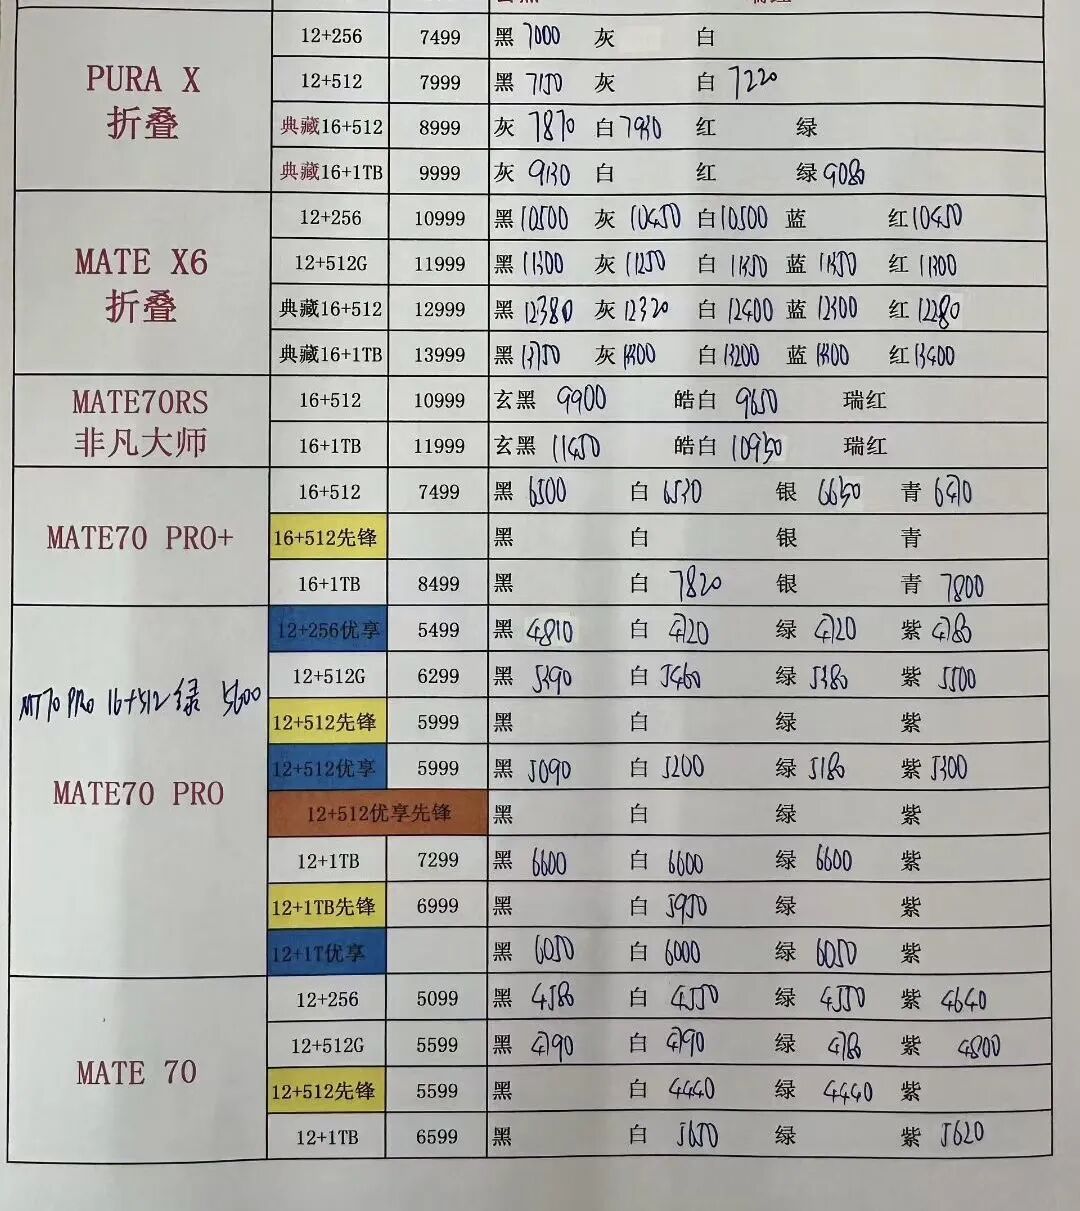 PURA X
折叠
12+256 7499 黑 7000 灰 白
12+512 7999 黑 7150 灰 白 7220
典藏16+512 8999 灰 7870 白 7930 红 绿
典藏16+1TB 9999 灰 9130 白 红 绿 9080
MATE X6
折叠
12+256 10999 黑 10500 灰 10450 白 10500 蓝 红 10450
12+512G 11999 黑 11300 灰 11250 白 11350 蓝 11350 红 11300
典藏16+512 12999 黑 12380 灰 12320 白 12400 蓝 12300 红 12280
典藏16+1TB 13999 黑 13150 灰 1300 白 13200 蓝 1300 红 13400
MATE70RS
非凡大师
16+512 10999 玄黑 9900 皓白 9650 瑞红
16+1TB 11999 玄黑 11450 皓白 10930 瑞红
MATE70 PRO+
16+512 7499 黑 6500 白 6530 银 6650 青 6470
16+512先锋 黑 白 银 青
16+1TB 8499 黑 白 7820 银 青 7800
MT70 PRO 16+512 绿 5600
MATE70 PRO
12+256优享 5499 黑 4810 白 4720 绿 4720 紫 4780
12+512G 6299 黑 5390 白 5460 绿 5380 紫 5500
12+512先锋 5999 黑 白 绿 紫
12+512优享 5999 黑 5090 白 5200 绿 5180 紫 5300
12+512优享先锋 黑 白 绿 紫
12+1TB 7299 黑 6600 白 6600 绿 6600 紫
12+1TB先锋 6999 黑 白 5950 绿 紫
12+1T优享 黑 6050 白 6000 绿 6050 紫
MATE 70
12+256 5099 黑 4580 白 4550 绿 4550 紫 4640
12+512G 5599 黑 4790 白 4790 绿 4780 紫 4800
12+512先锋 5599 黑 白 4440 绿 4440 紫
12+1TB 6599 黑 白 5650 绿 紫 5620